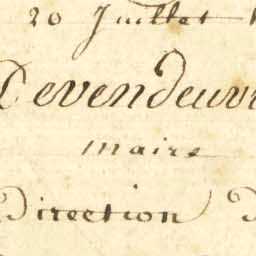 20 Juillet
Devendeuvr
maire
Direction d